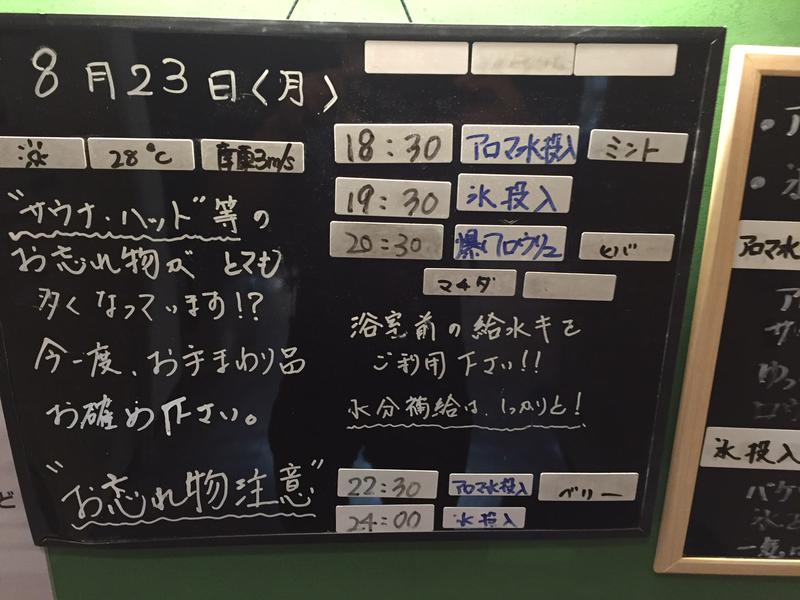 8月23日〈月〉
28℃ 南東3m/s
18:30 アロマ水投入 ミント
19:30 氷投入
20:30 爆リロウリュ ヒバ
マチダ
"サウナ・ハット"等の
お忘れ物が とても
多くなっています!?
今一度、お手まわり品
お確め下さい。
"お忘れ物注意"
浴室前の給水キを
ご利用下さい!!
水分補給は、しっかりと!
22:30 アロマ水投入 ベリー
24:00 氷投入
ど
アロマ水
ゆっ
氷投入
バケ
氷を
一気に